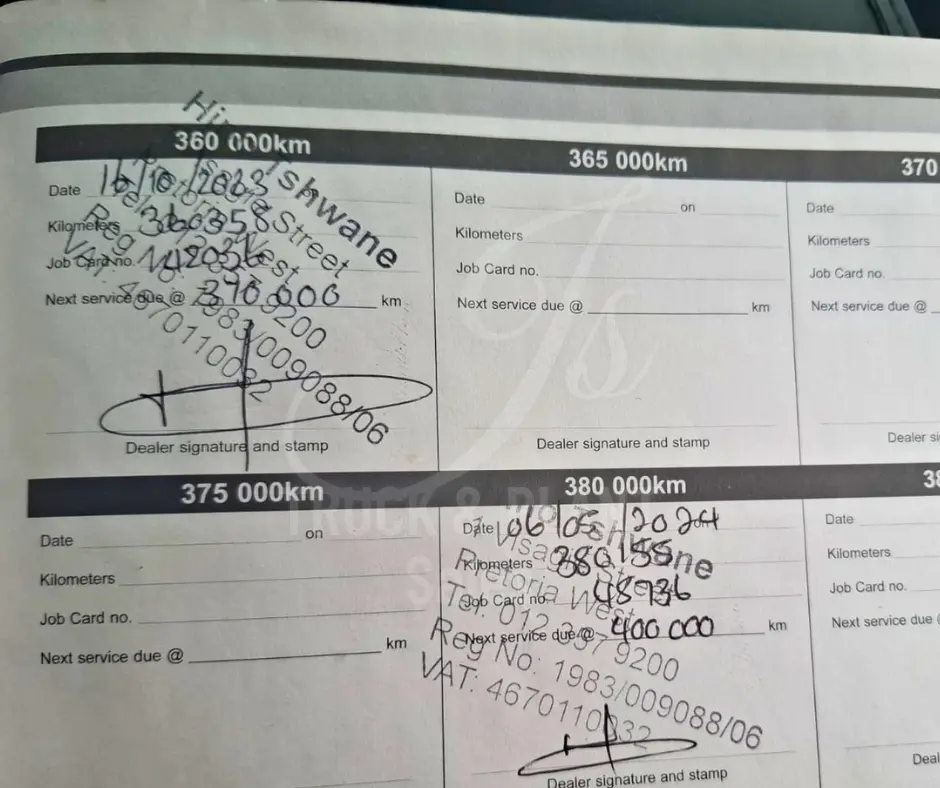 360 000km
365 000km
370
Date 16/10/2023
Kilometers 360358
Job Card no. 42036
Next service due @ 370 000 km
Tshwane
Street
West
9200
Reg No: 1983/009088/06
VAT: 4670110032
Dealer signature and stamp
Date on
Kilometers
Job Card no.
Next service due @ km
Dealer signature and stamp
Date
Kilometers
Job Card no.
Next service due @
Dealer
375 000km
380 000km
Date on
Kilometers
Job Card no.
Next service due @ km
Date 06/05/2024
Kilometers 380155
Job Card no. 48736
Next service due @ 400 000 km
Pretoria West
Tel: 012 9200
Reg No: 1983/009088/06
VAT: 4670110032
Dealer signature and stamp
Date
Kilometers
Job Card no.
Next service due
TRUCK &